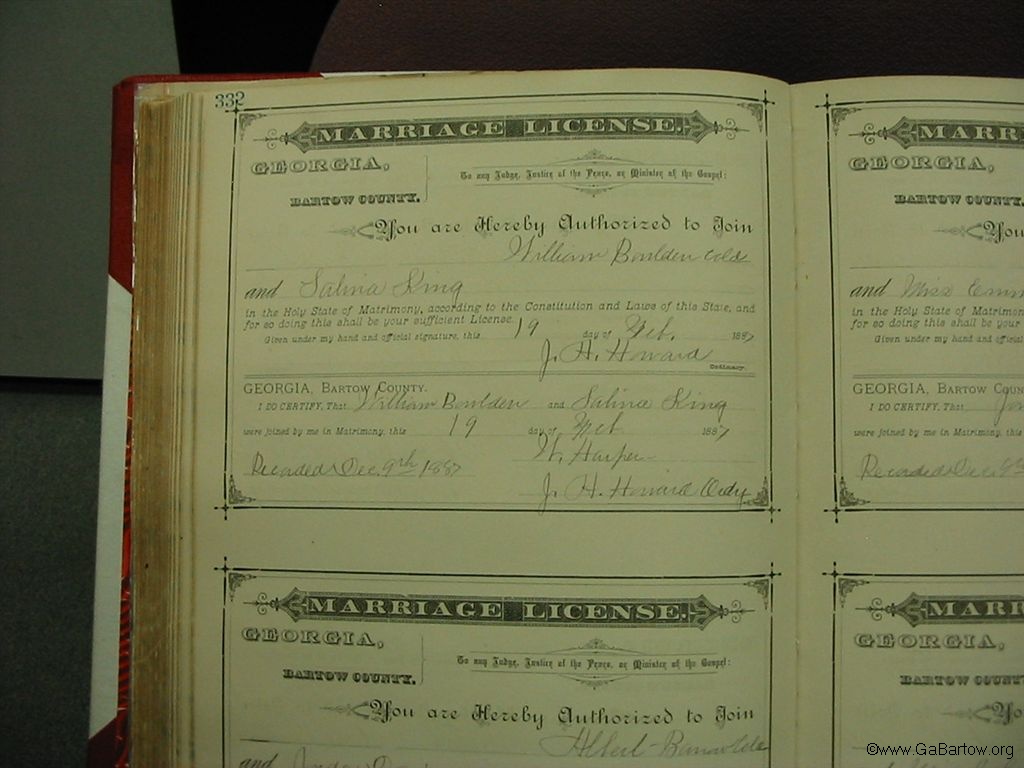 332
MARRIAGE LICENSE.
GEORGIA,
BARTOW COUNTY.
To any Judge, Justice of the Peace, or Minister of the Gospel:
You are Hereby Authorized to Join
William Boulden cold
and Salina King
in the Holy State of Matrimony, according to the Constitution and Laws of this State, and
for so doing this shall be your sufficient License.
Given under my hand and official signature, this 19 day of Feb. 1887
J. H. Howard
Ordinary.
GEORGIA, BARTOW COUNTY.
I DO CERTIFY, That William Boulden and Salina King
were joined by me in Matrimony, this 19 day of Feb 1887
W. Harper
Recorded Dec. 9th 1887
J. H. Howard Ordy
MARRIAGE LICENSE.
GEORGIA,
BARTOW COUNTY.
To any Judge, Justice of the Peace, or Minister of the Gospel:
You are Hereby Authorized to Join
Albert
and
MARR
GEORGIA,
BARTOW COUNTY.
You
and Miss Emm
in the Holy State of Matrimon
for so doing this shall be your
Given under my
GEORGIA, BARTOW COUN
I DO CERTIFY, That
were joined by me in Matrimony, this
Recorded Dec
MARR
GEORGIA,
BARTOW COUNTY
You
©www.GaBartow.org